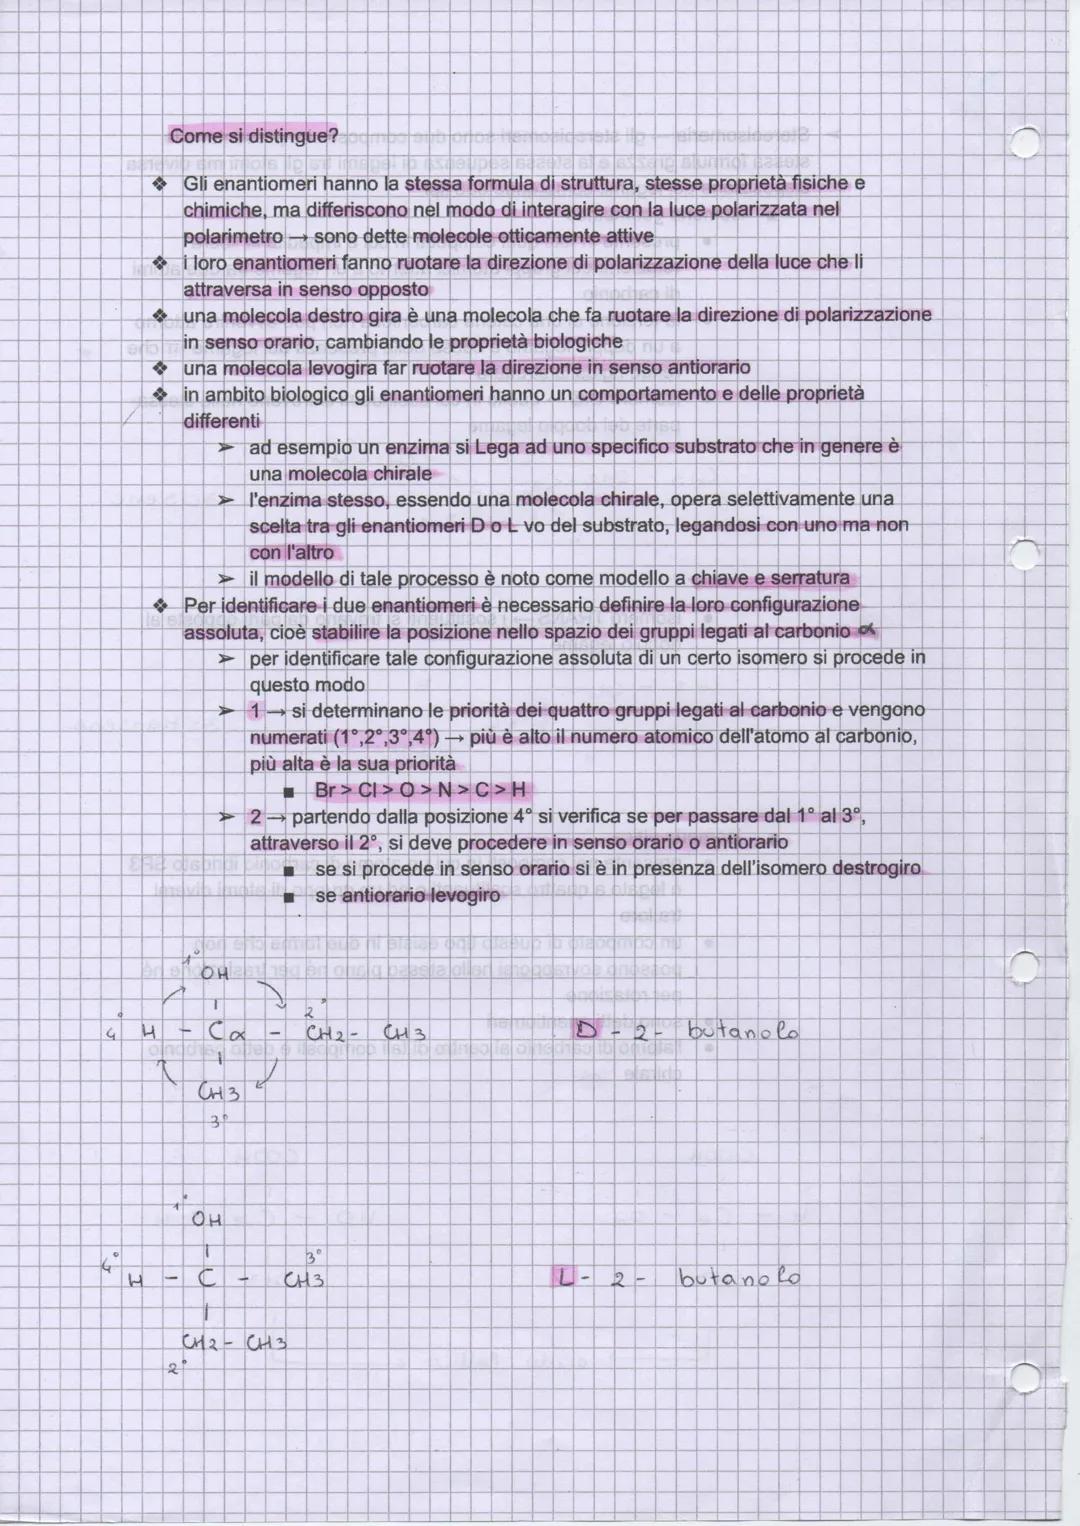 Come si distingue?
❖ Gli enantiomeri hanno la stessa formula di struttura, stesse proprietà fisiche e
chimiche, ma differiscono nel modo di interagire con la luce polarizzata nel
polarimetro → sono dette molecole otticamente attive
❖ i loro enantiomeri fanno ruotare la direzione di polarizzazione della luce che li
attraversa in senso opposto
❖ una molecola destro gira è una molecola che fa ruotare la direzione di polarizzazione
in senso orario, cambiando le proprietà biologiche
❖ una molecola levogira far ruotare la direzione in senso antiorario
❖ in ambito biologico gli enantiomeri hanno un comportamento e delle proprietà
differenti
➢ ad esempio un enzima si Lega ad uno specifico substrato che in genere è
una molecola chirale
➢ l'enzima stesso, essendo una molecola chirale, opera selettivamente una
scelta tra gli enantiomeri D o L vo del substrato, legandosi con uno ma non
con l'altro
➢ il modello di tale processo è noto come modello a chiave e serratura
❖ Per identificare i due enantiomeri è necessario definire la loro configurazione
assoluta, cioè stabilire la posizione nello spazio dei gruppi legati al carbonio α
➢ per identificare tale configurazione assoluta di un certo isomero si procede in
questo modo
➢ 1 → si determinano le priorità dei quattro gruppi legati al carbonio e vengono
numerati (1°,2°,3°,4°) → più è alto il numero atomico dell'atomo al carbonio,
più alta è la sua priorità
■ Br > Cl > O > N > C > H
➢ 2 → partendo dalla posizione 4° si verifica se per passare dal 1° al 3°,
attraverso il 2°, si deve procedere in senso orario o antiorario
■ se si procede in senso orario si è in presenza dell'isomero destrogiro
■ se antiorario levogiro
1°
OH
4° H - Cα - CH2 - CH3 D - 2 - butanolo
2°
CH3
3°
1°
OH
3°
4° H - C - CH3 L - 2 - butanolo
CH2 - CH3
2°